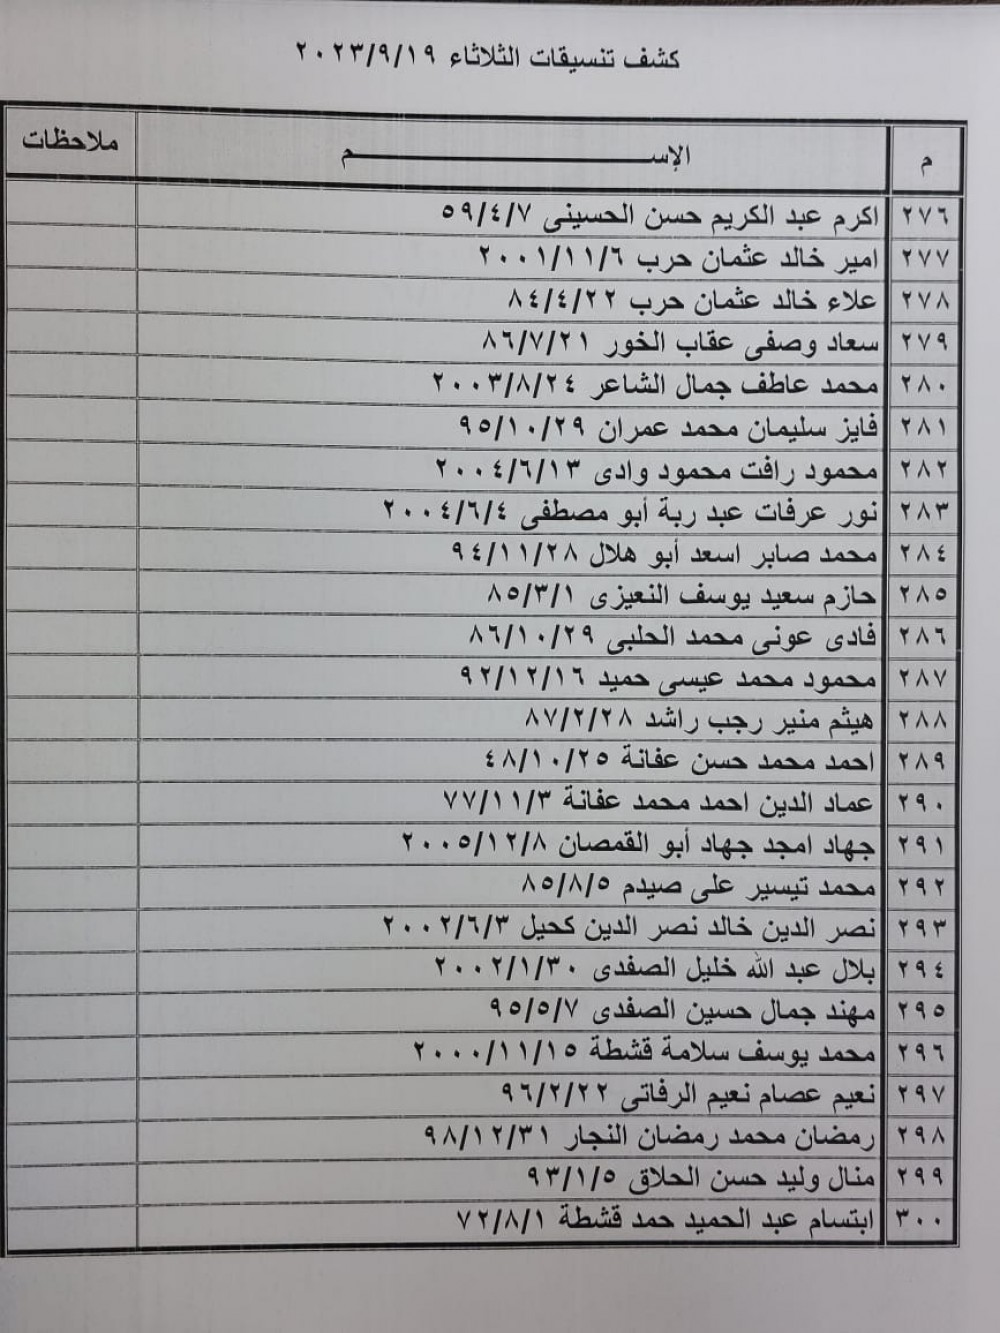 كشف تنسيقات الثلاثاء ٢٠٢٣/٩/١٩
م الإســـــــم ملاحظات
٢٧٦ اكرم عبد الكريم حسن الحسينى ٥٩/٤/٧
٢٧٧ امير خالد عثمان حرب ٢٠٠١/١١/٦
٢٧٨ علاء خالد عثمان حرب ٨٤/٤/٢٢
٢٧٩ سعاد وصفى عقاب الخور ٨٦/٧/٢١
٢٨٠ محمد عاطف جمال الشاعر ٢٠٠٣/٨/٢٤
٢٨١ فايز سليمان محمد عمران ٩٥/١٠/٢٩
٢٨٢ محمود رافت محمود وادى ٢٠٠٤/٦/١٣
٢٨٣ نور عرفات عبد ربة أبو مصطفى ٢٠٠٤/٦/٤
٢٨٤ محمد صابر اسعد أبو هلال ٩٤/١١/٢٨
٢٨٥ حازم سعيد يوسف النعيزى ٨٥/٣/١
٢٨٦ فادى عونى محمد الحلبى ٨٦/١٠/٢٩
٢٨٧ محمود محمد عيسى حميد ٩٢/١٢/١٦
٢٨٨ هيثم منير رجب راشد ٨٧/٢/٢٨
٢٨٩ احمد محمد حسن عفانة ٤٨/١٠/٢٥
٢٩٠ عماد الدين احمد محمد عفانة ٧٧/١١/٣
٢٩١ جهاد امجد جهاد أبو القمصان ٢٠٠٥/١٢/٨
٢٩٢ محمد تيسير على صيدم ٨٥/٨/٥
٢٩٣ نصر الدين خالد نصر الدين كحيل ٢٠٠٢/٦/٣
٢٩٤ بلال عبد الله خليل الصفدى ٢٠٠٢/١/٣٠
٢٩٥ مهند جمال حسين الصفدى ٩٥/٥/٧
٢٩٦ محمد يوسف سلامة قشطة ٢٠٠٠/١١/١٥
٢٩٧ نعيم عصام نعيم الرفاتى ٩٦/٢/٢٢
٢٩٨ رمضان محمد رمضان النجار ٩٨/١٢/٣١
٢٩٩ منال وليد حسن الحلاق ٩٣/١/٥
٣٠٠ ابتسام عبد الحميد حمد قشطة ٧٢/٨/١